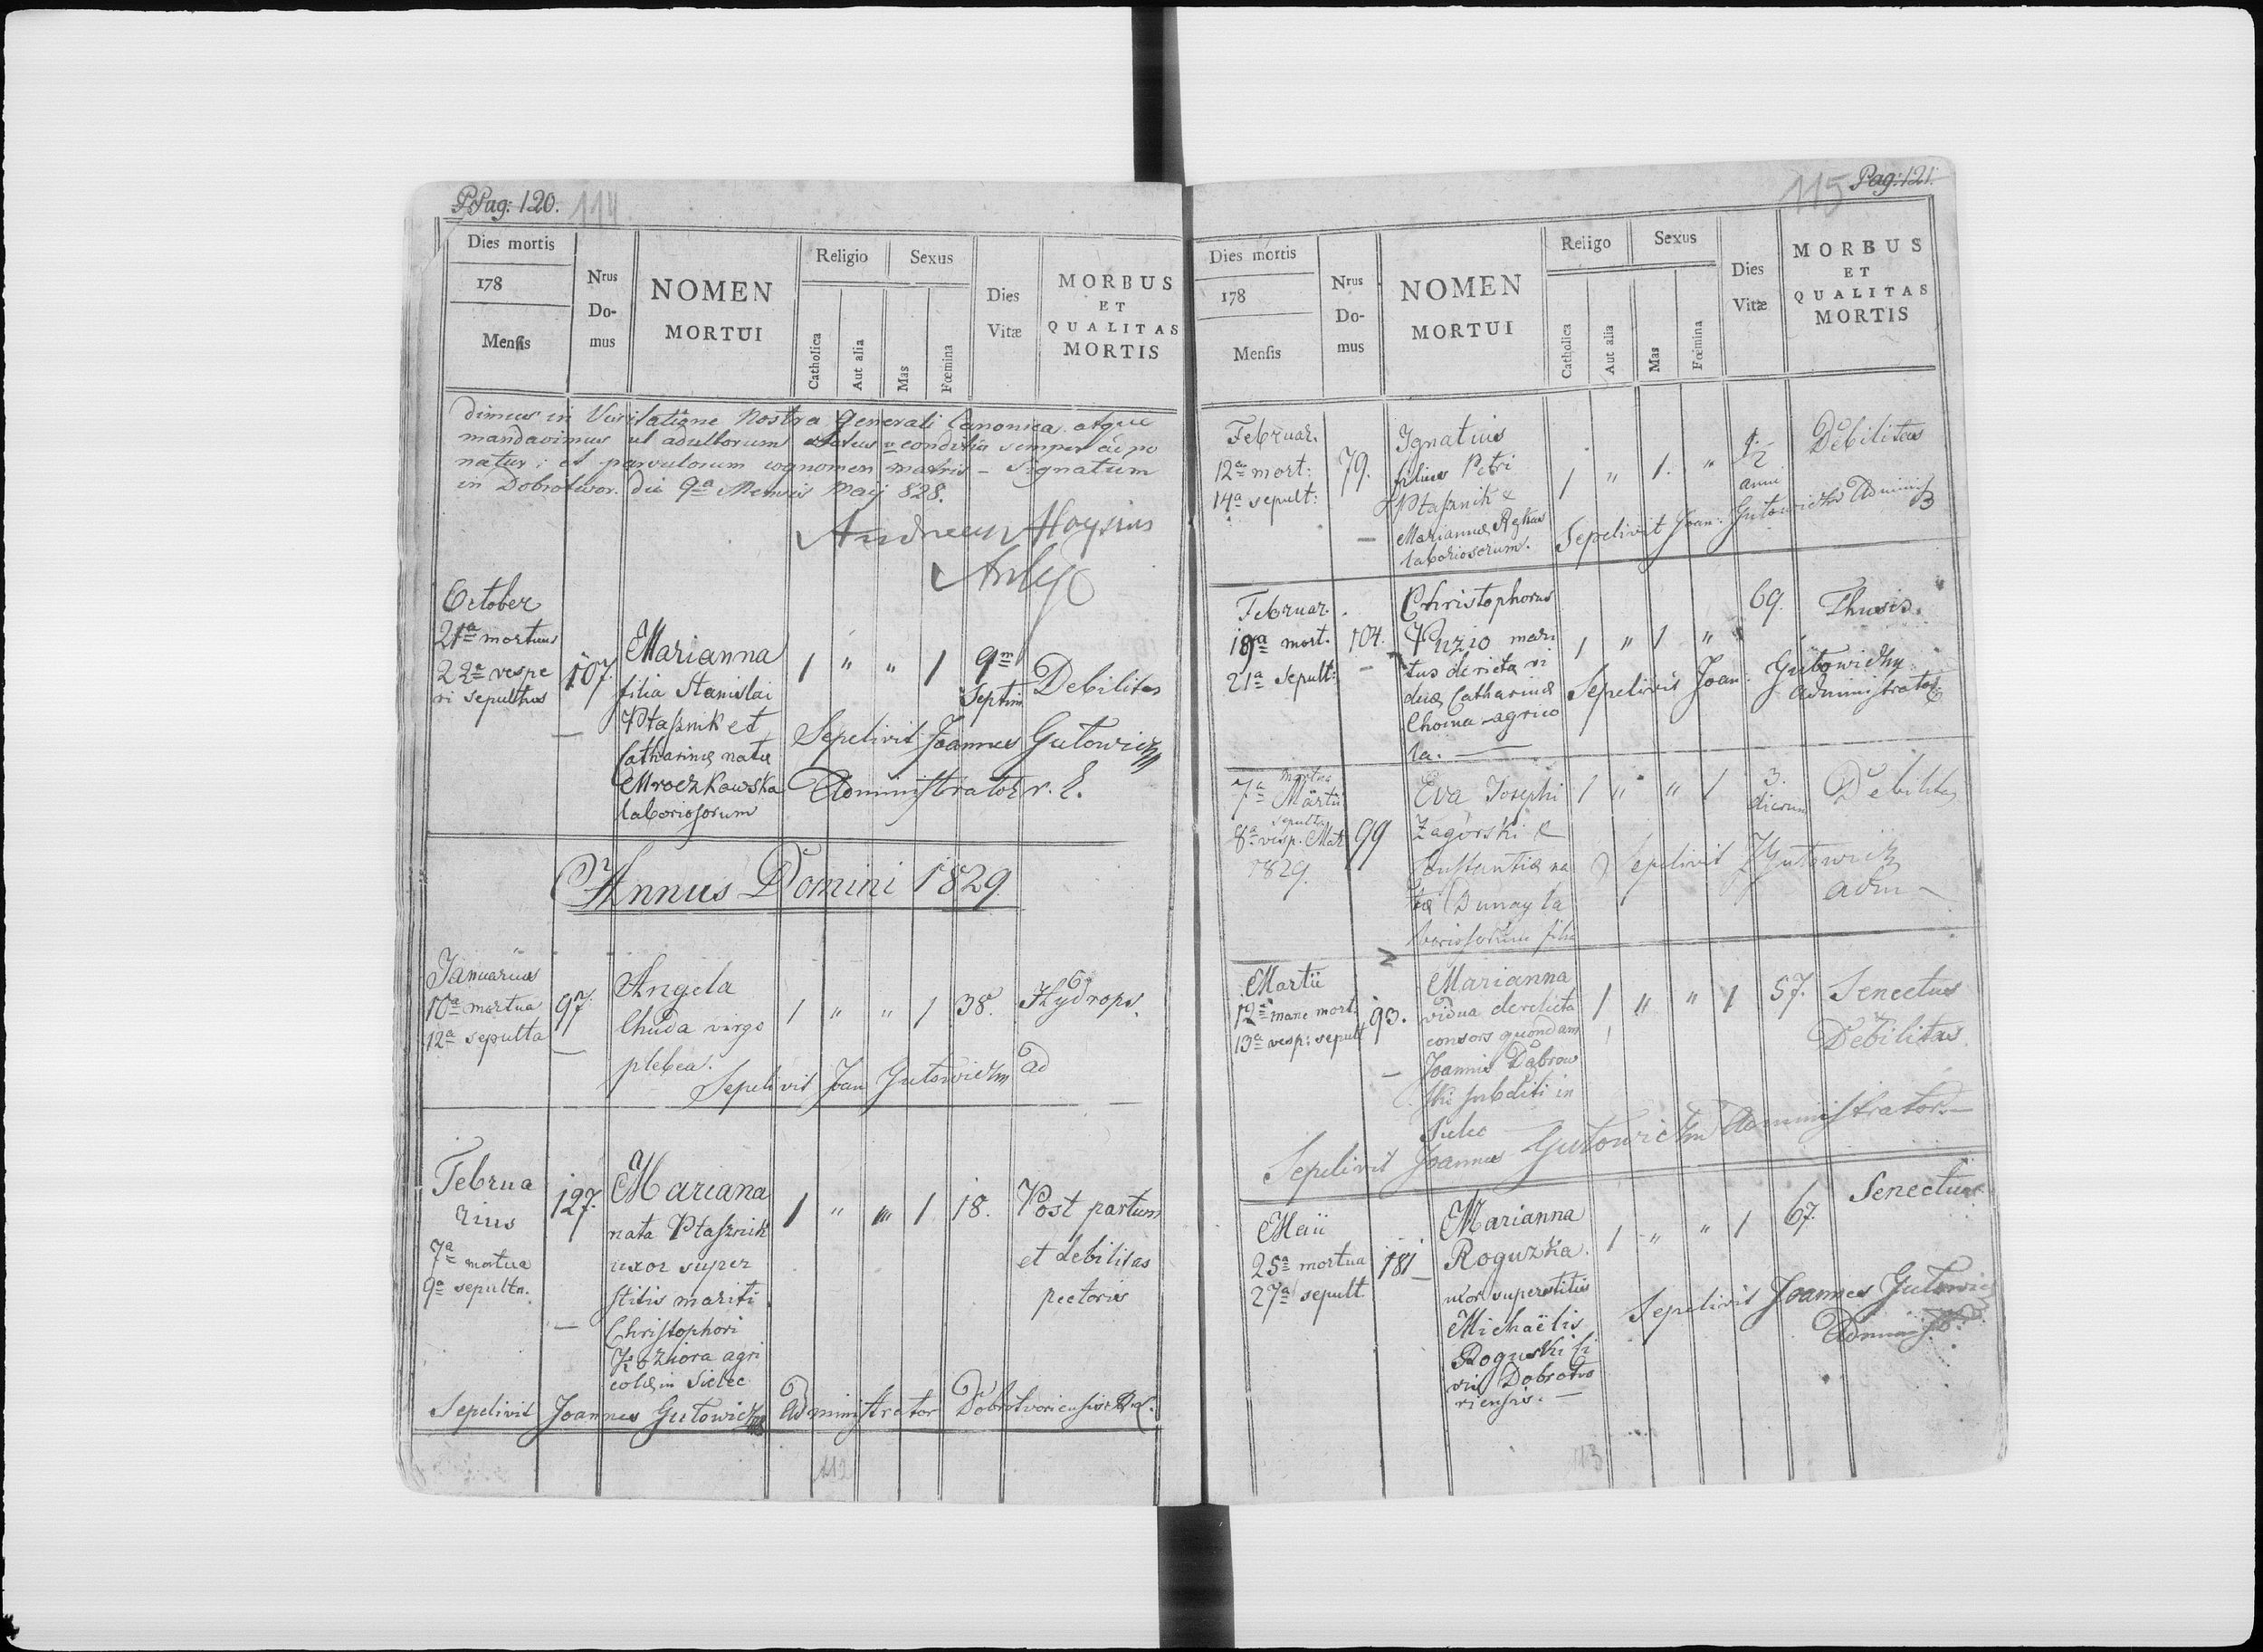 Pag: 120. 114
Dies mortis
178
Mensis
Nrus
Do-
mus
NOMEN
MORTUI
Religio
Catholica
Aut alia
Sexus
Mas
Fœmina
Dies
Vitæ
MORBUS
ET
QUALITAS
MORTIS
dimus in Visitatione Nostra Generali Canonica atque
mandavimus ut adultorum status et conditio semper
natur; et parvulorum cognomen matris – Signatum
in Dobrotwor. die 9a Mensis Maij 828.
Andreas Aloysius
October
21a mortuus
22a vespe
ri sepultus
107.
Marianna
filia Stanislai
Ptasznik et
Catharinæ natæ
Mroczkowska
laboriosorum
1 " " 1
9m
Septim
Debilitas
Sepelivit Joannes Gutowicz
Administrator r. l.
Annus Domini 1829
Januarius
10a mortua
12a sepulta
97.
Angela
Chuda virgo
plebea.
1 " " 1 38. Hydrops.
Sepelivit Joan Gutowicz ad
Februa
rius
7a mortua
9a sepulta.
127.
Mariana
nata Ptasznik
uxor super
stitis mariti
Christophori
Koziora agri
colæ in Sielec
1 " " 1 18.
Post partum
et debilitas
pectoris
Sepelivit Joannes Gutowicz Administrator Dobrotvoriensis R. L.
112
115 Pag: 121.
Dies mortis
178
Mensis
Nrus
Do-
mus
NOMEN
MORTUI
Religo
Catholica
Aut alia
Sexus
Mas
Fœmina
Dies
Vitæ
MORBUS
ET
QUALITAS
MORTIS
Februar.
12a mort:
14a sepult:
79.
Ignatius
filius Petri
Ptasznik &
Mariannæ
laboriosorum.
1 " 1. "
1/2
anni
Debilitas
Sepelivit Joan: Gutowicz Administ
Februar.
19a mort.
21a Sepult:
104.
Christophorus
Puzio mari
tus derictæ vi
duæ Catharinæ
Choma agrico
la.
1 " 1 "
69.
Thusis.
Sepelivit Joan: Gutowicz
administrator
mortua
7a Martii
sepulta
8a vesp. Mar
1829.
99
Eva Josephi
Zagorski &
Constantiæ na
tæ Dunay la
boriosorum filia
1 " " 1
3.
dierum
Debilitas
Sepelivit J Gutowicz
adm
Martii
12a mane mort.
13a vesp: sepult
93.
Marianna
vidua derelicta
consors quondam
Joannis Dąbrow
ski subditi in
Sielec
1 " " 1 57. Senectus
Debilitas.
Sepelivit Joannes Gutowicz Administrator
Maii
25a mortua
27a sepult
181
Marianna
Roguzka.
uxor superstitis
Michaëlis
Roguski ci
vis Dobrotvo
riensis.
1 " " 1 67. Senectus
Sepelivit Joannes Gutowicz
Administ.
113